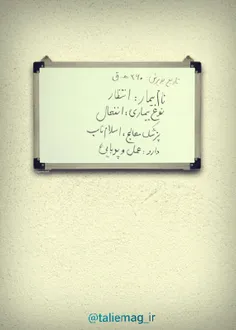 نام بیمار: انتظار
نوع بیماری: انتقال
پزشک معالج: اسلام ناب
دارو: عمل و پویایی
@taliemag_ir